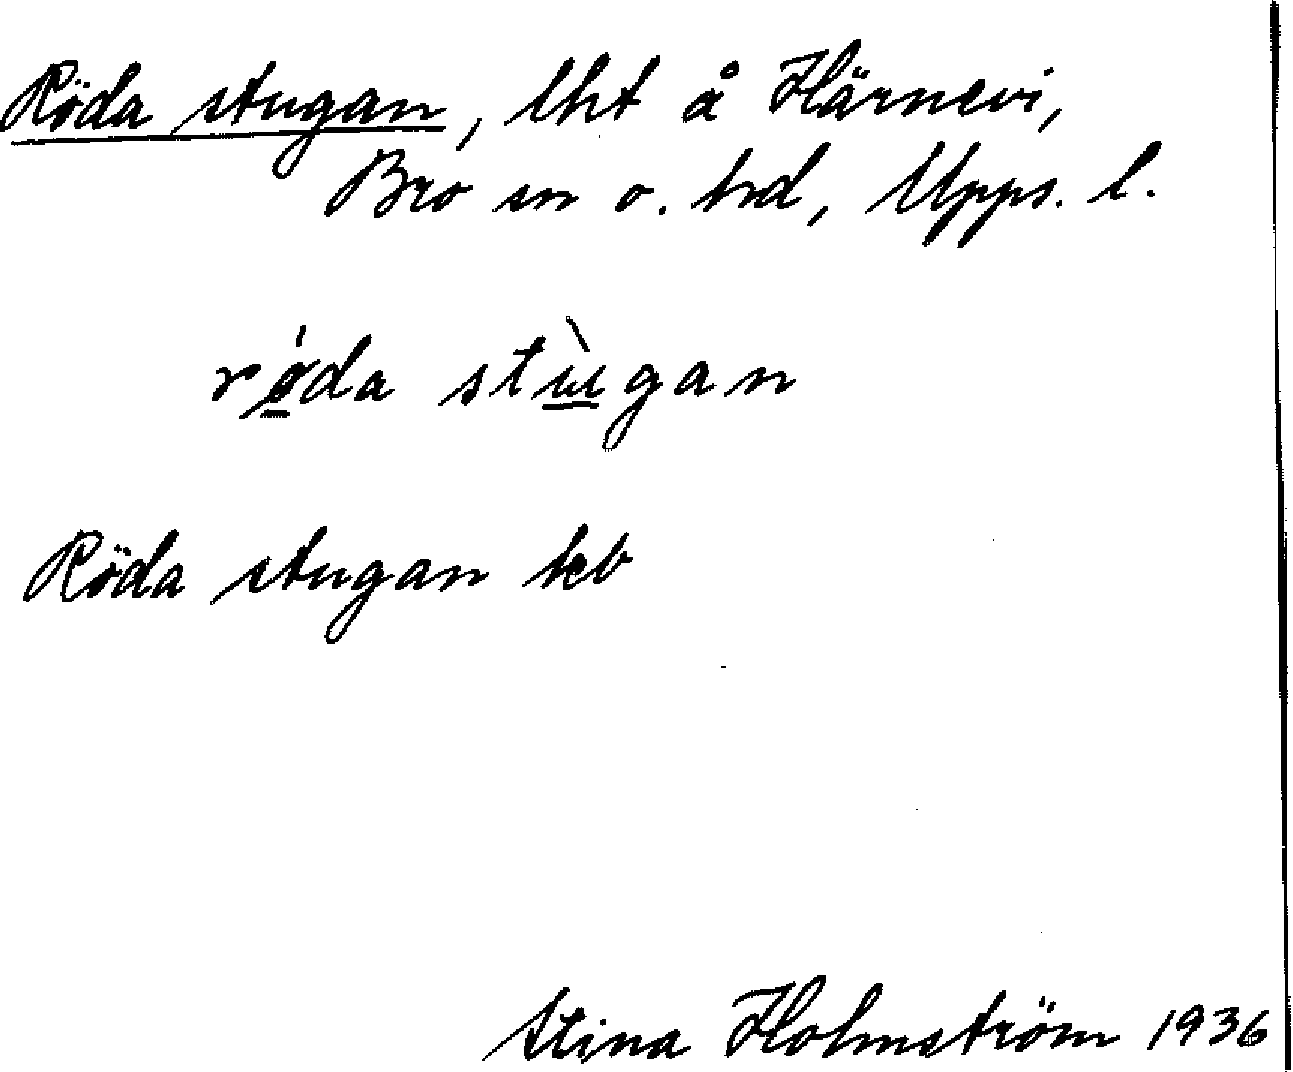 Röda stugan, lht å Härnevi,
Bro sn o. hd, Upps. l.
rǿda stùgan
Röda stugan kb
Stina Holmström 1936